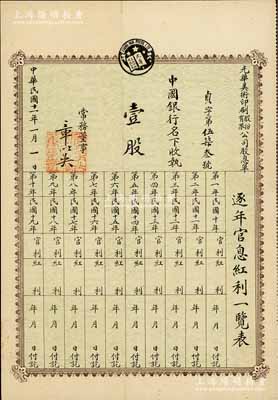 上海陽明拍賣
光華美術印刷股份有限公司股息單
貞字第伍拾叁號
中國銀行名下收執
壹股
常務董事
中華民國十一年一月一日
逐年官息紅利一覽表
第一年民國十年 官利 紅利 年月日付訖
第二年民國十一年 官利 紅利 年月日付訖
第三年民國十二年 官利 紅利 年月日付訖
第四年民國十三年 官利 紅利 年月日付訖
第五年民國十四年 官利 紅利 年月日付訖
第六年民國十五年 官利 紅利 年月日付訖
第七年民國十六年 官利 紅利 年月日付訖
第八年民國十七年 官利 紅利 年月日付訖
第九年民國十八年 官利 紅利 年月日付訖
第十年民國十九年 官利 紅利 年月日付訖